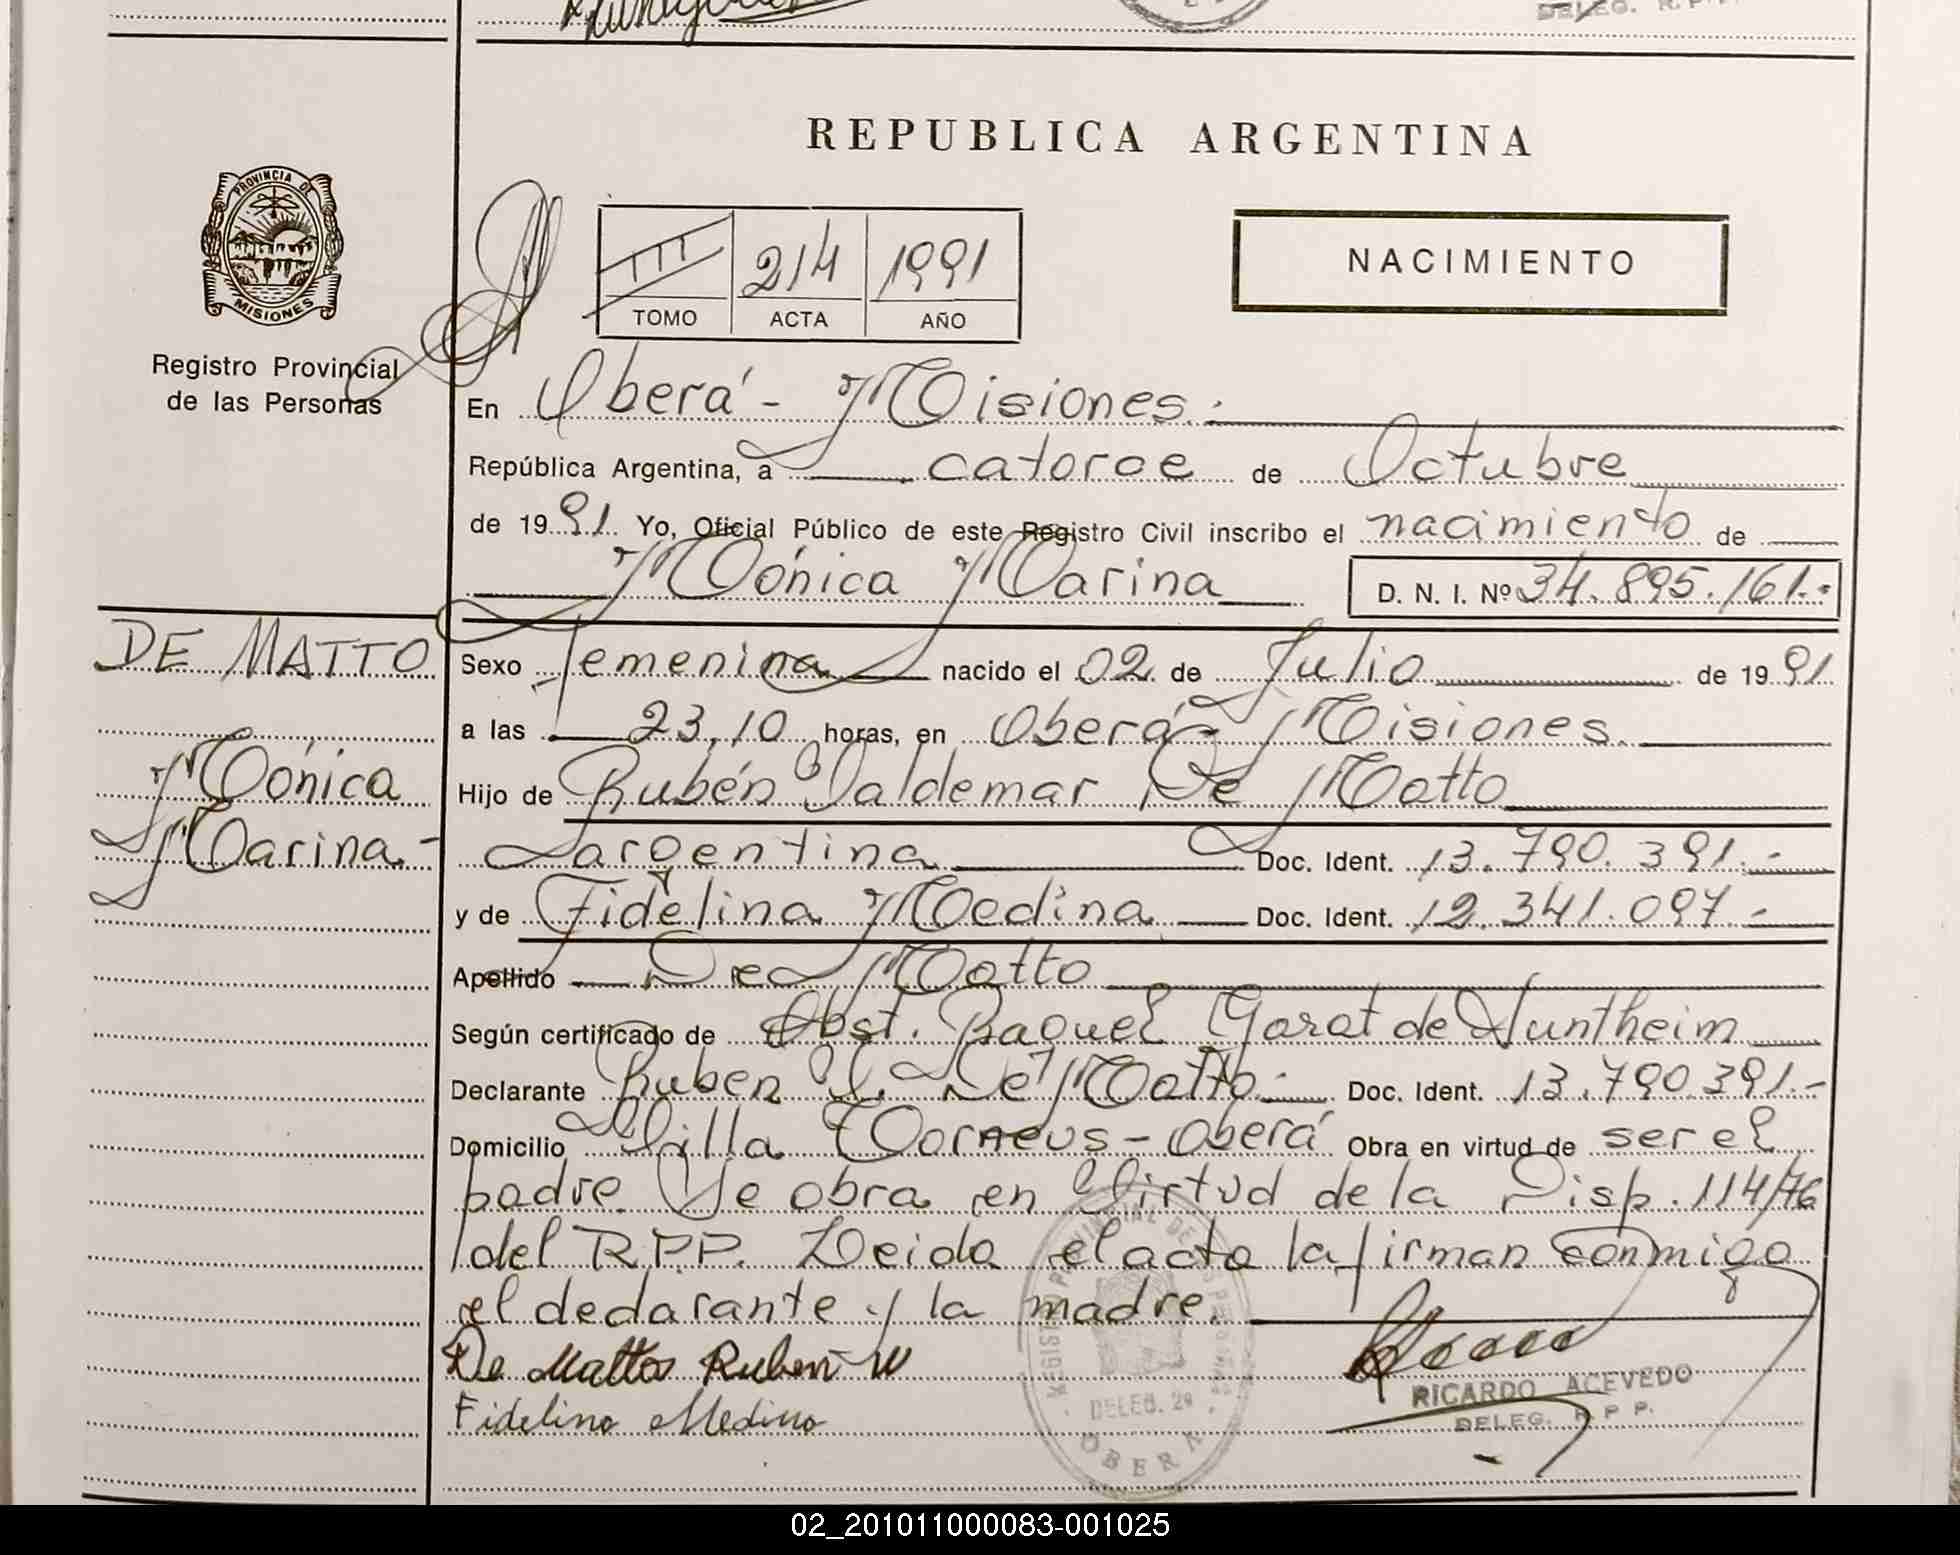 DELEG. R.P.P.
REPUBLICA ARGENTINA
PROVINCIA DE
MISIONES
Registro Provincial
de las Personas
III 214 1991
TOMO ACTA AÑO
NACIMIENTO
En Oberá - Misiones.
República Argentina, a catorce de Octubre
de 1991. Yo, Oficial Público de este Registro Civil inscribo el nacimiento de
Mónica Marina D. N. I. Nº 34.895.161.-
DE MATTO
Mónica
Marina.-
Sexo femenina nacido el 02 de Julio de 1991
a las 23,10 horas, en Oberá - Misiones.
Hijo de Rubén Valdemar De Matto
argentina Doc. Ident. 13.790.391.-
y de Fidelina Medina Doc. Ident. 12.341.097.-
Apellido De Matto
Según certificado de Obst. Raquel Garat de Huntheim
Declarante Ruben V. De Matto.- Doc. Ident. 13.790.391.-
Domicilio Villa Torneus - Oberá Obra en virtud de ser el
padre. Se obra en Virtud de la Disp. 114/76
del R.P.P. Leida el acta la firman conmigo
el declarante y la madre.
De Mattos Ruben W
Fidelina Medina
REGISTRO PROVINCIAL DE LAS PERSONAS
DELEG. 29
OBERA
RICARDO ACEVEDO
DELEG. R. P. P.
02_201011000083-001025